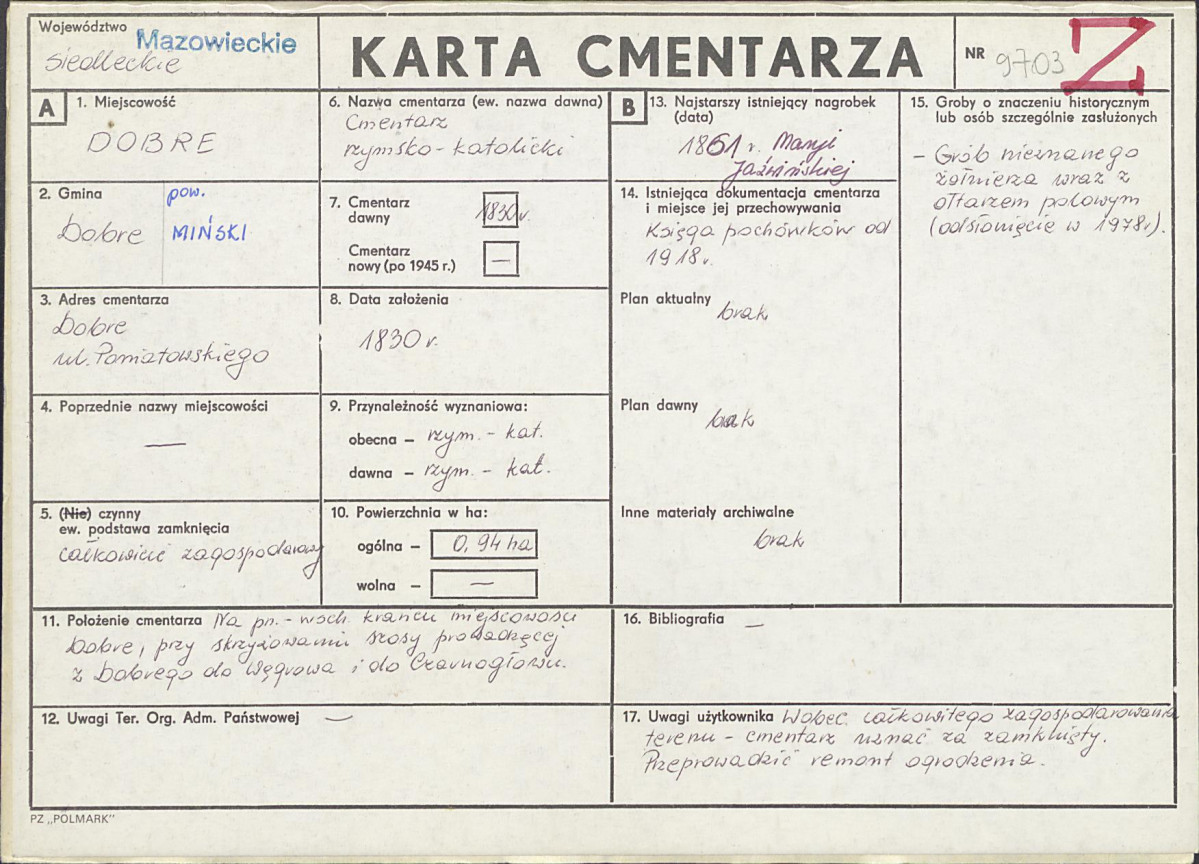 Województwo Mazowieckie
siedleckie
KARTA CMENTARZA
NR 9703 Z
A
1. Miejscowość
DOBRE
2. Gmina
Dobre
pow.
MIŃSKI
3. Adres cmentarza
Dobre
ul. Poniatowskiego
4. Poprzednie nazwy miejscowości
—
5. (Nie) czynny
ew. podstawa zamknięcia
całkowicie zagospodarowany
6. Nazwa cmentarza (ew. nazwa dawna)
Cmentarz
rzymsko - katolicki
7. Cmentarz
dawny
1830 r.
Cmentarz
nowy (po 1945 r.)
—
8. Data założenia
1830 r.
9. Przynależność wyznaniowa:
obecna – rzym. - kat.
dawna – rzym. - kat.
10. Powierzchnia w ha:
ogólna – 0,94 ha
wolna – —
11. Położenie cmentarza Na pn. - wsch. krańcu miejscowości
Dobre, przy skrzyżowaniu szosy prowadzącej
z Dobrego do Węgrowa i do Czarnogłowu.
12. Uwagi Ter. Org. Adm. Państwowej —
B
13. Najstarszy istniejący nagrobek
(data)
1861 r. Maryi
Jaźwińskiej
14. Istniejąca dokumentacja cmentarza
i miejsce jej przechowywania
Księga pochówków od
1918 r.
Plan aktualny
brak
Plan dawny
brak
Inne materiały archiwalne
brak
15. Groby o znaczeniu historycznym
lub osób szczególnie zasłużonych
– Grób nieznanego
żołnierza wraz z
ołtarzem polowym
(odsłonięcie w 1978 r.).
16. Bibliografia —
17. Uwagi użytkownika Wobec całkowitego zagospodarowania
terenu – cmentarz uznać za zamknięty.
Przeprowadzić remont ogrodzenia.
PZ „POLMARK"